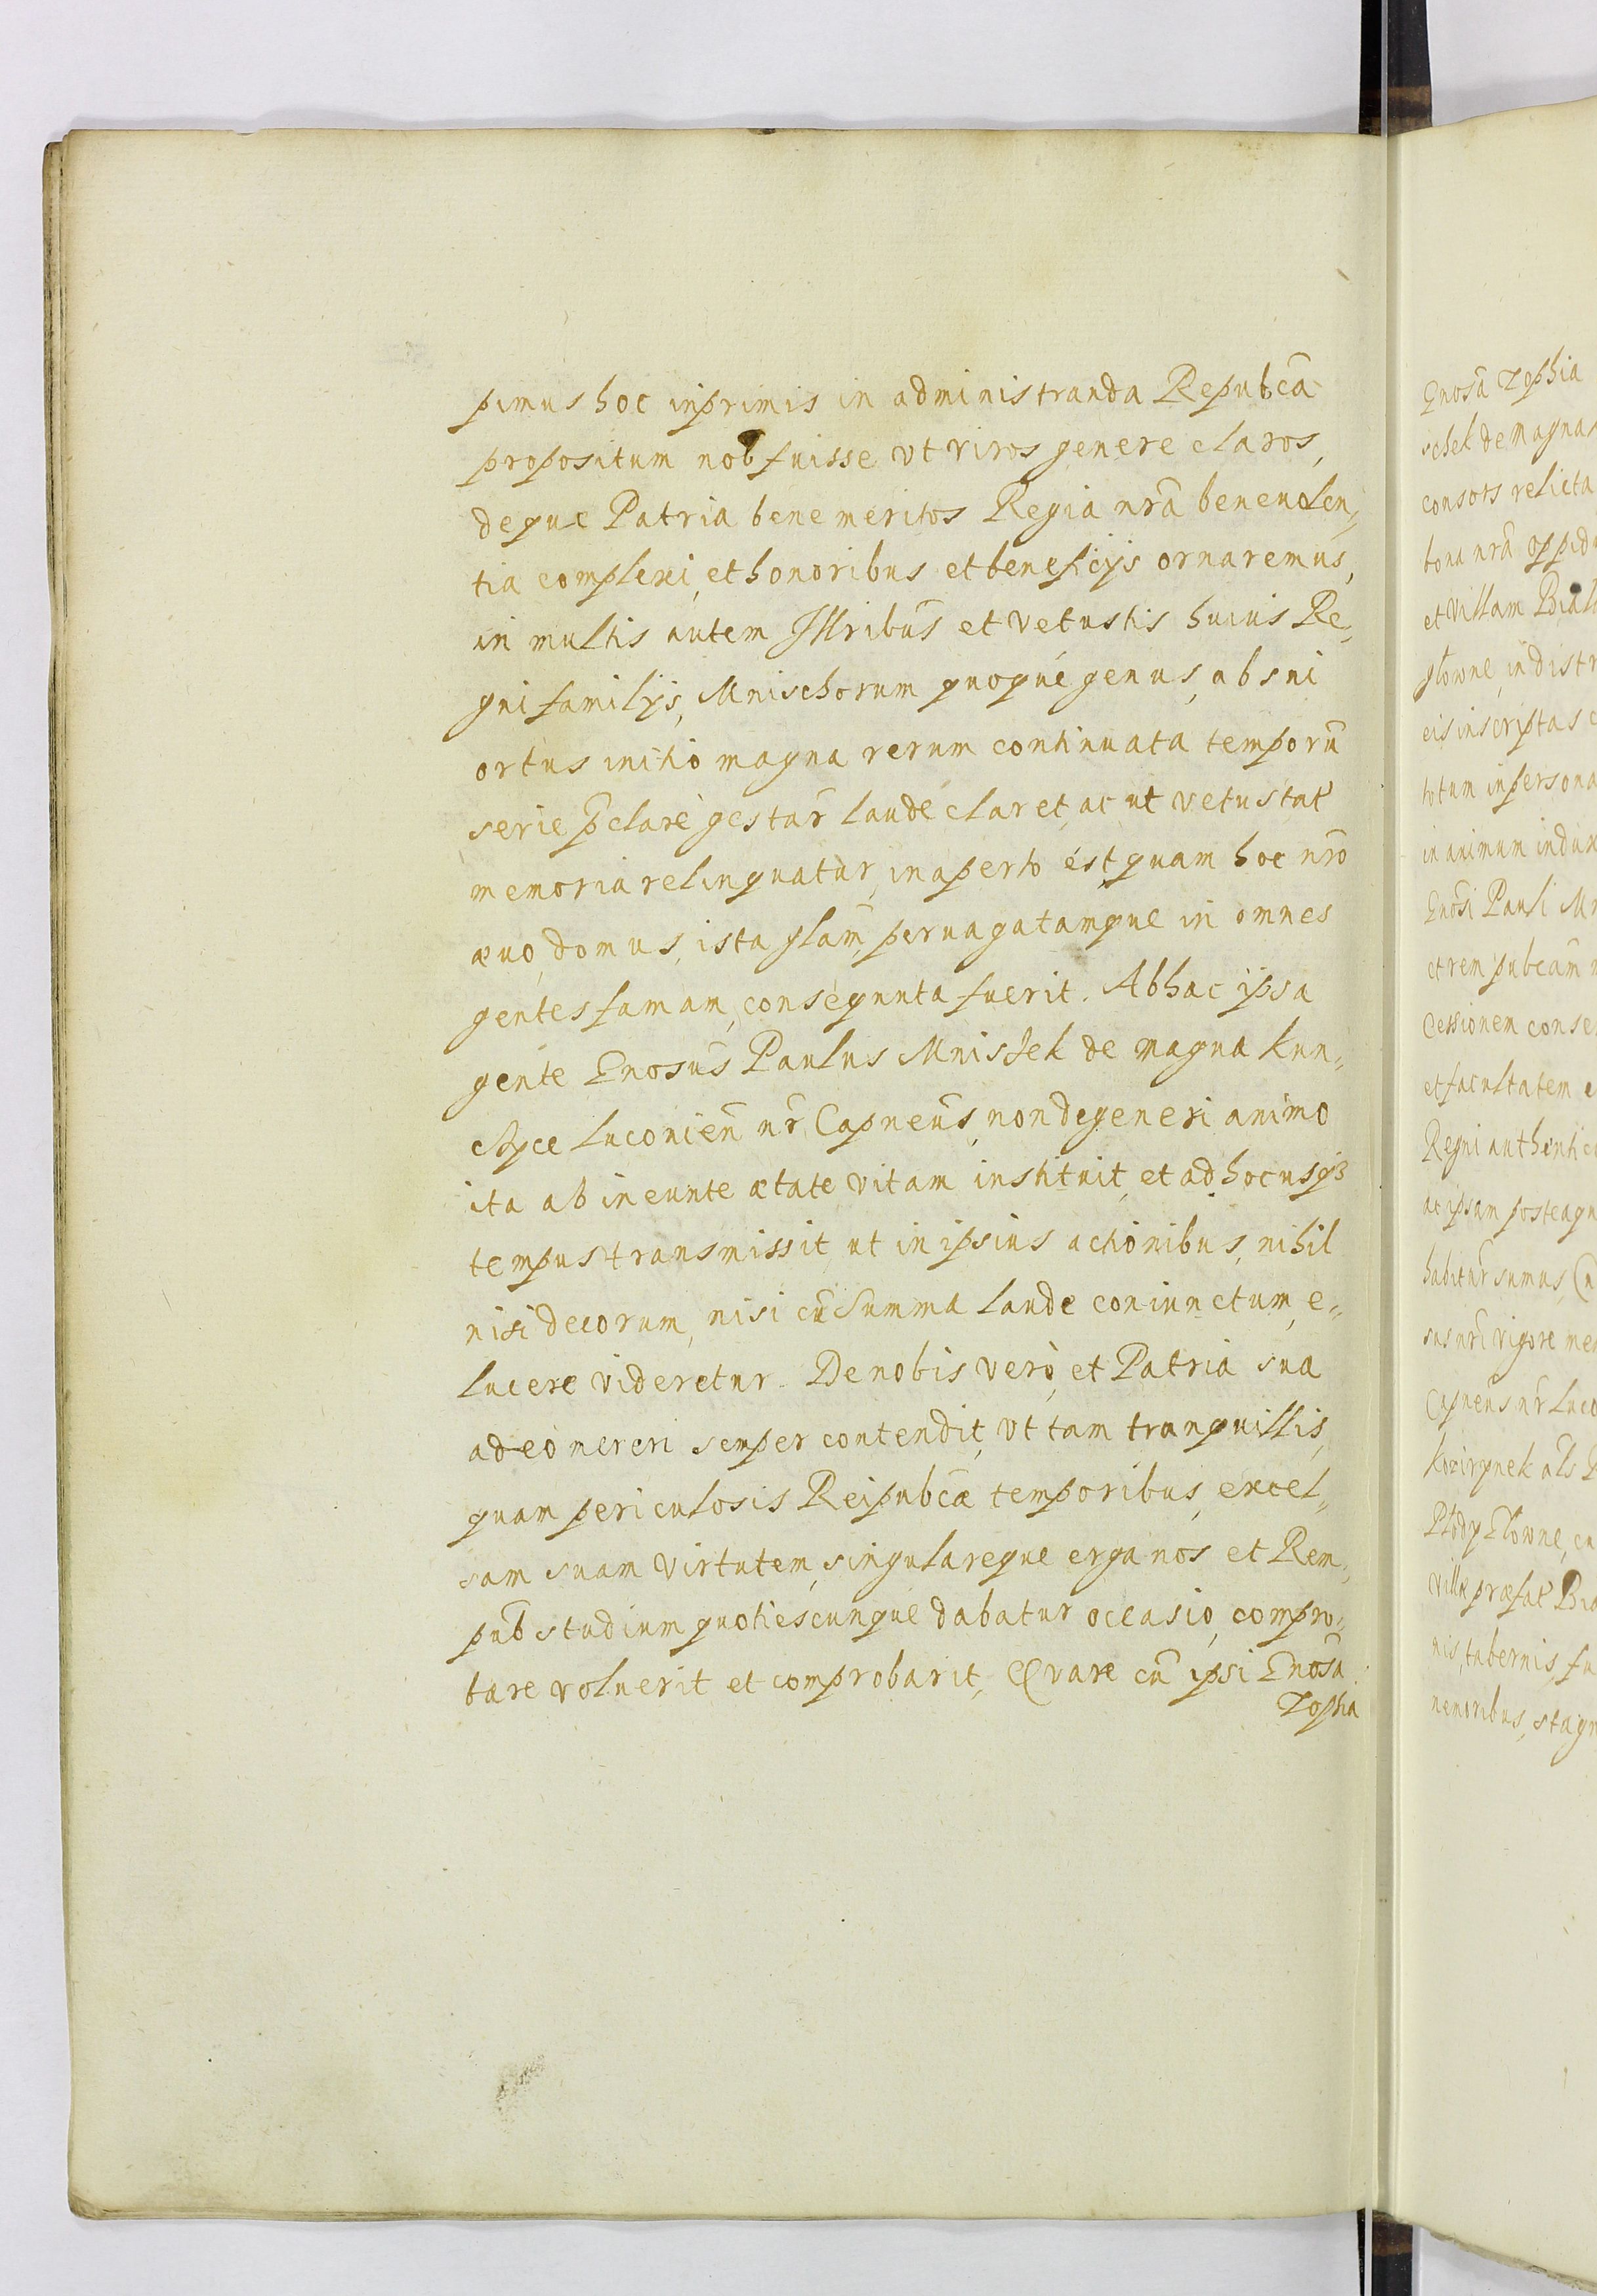 pimus hoc inprimis in administranda Repubcã
propositum nob fuisse vt viros genere claros,
deque Patria bene meritos Regia nrã beneuolen„
tia complexi, et honoribus et beneficijs ornaremus,
in multis autem Illribus̃ et vetustis huius Re„
gni familijs, Mnischorum quoqué genus, ab sui
ortus initio magna rerum continuata temporũ
serie p̃clarè gestar̃ laudé claret, ac ut vetustat̃
memoria relinquatur, in aperto ést, quam hoc nrõ
æuo, domus, ista glam̃, peruagatamque in omnes
gentes famam, conséquuta fuerit. Ab hac ipsa
gente Gnosus̃ Paulus Mnisѕek de magna Kun„
czyce Luconien̄ nr̃ Capneus̃, non degeneri animo
ita ab ineunte ætate vitam instituit, et ad hoc usqз
tempus transmissit, ut in ipsius actionibus, nihil
nisi decorum, nisi cũ Summa laude coniunctum, e„
lucere videretur. De nobis verò, et Patria sua
adeo mereri semper contendit, vt tam tranquillis,
quam periculosis Reipubcæ̃ temporibus, excel„
sam suam virtutem, singulareque erga nos et Rem„
pub̃ studium quotiescunque dabatur occasio, compro„
bare voluerit et comprobarit, Qvare cũ ipsi Gnosa̅
Zophia
Gnosã Zophia
schek de Magna
consors relicta
bona nrã oppidu
et villam Bial
głowne, in distr
eis inscriptas c
totum in persona
in animum indux
Gnosi̅ Pauli Mn
et rem pubcam̃
Cessionem conse
et facultatem
Regni authentic
ac ipsam posteaqu
habitur̃ sumus,
sus nri̅ vigore me
Capneus̃ nr̃ Luco
Kozirynek al̃s
Płudy Głowne, cu
villæ præfat̃ Bia
nis, tabernis, fu
nemoribus, stagn